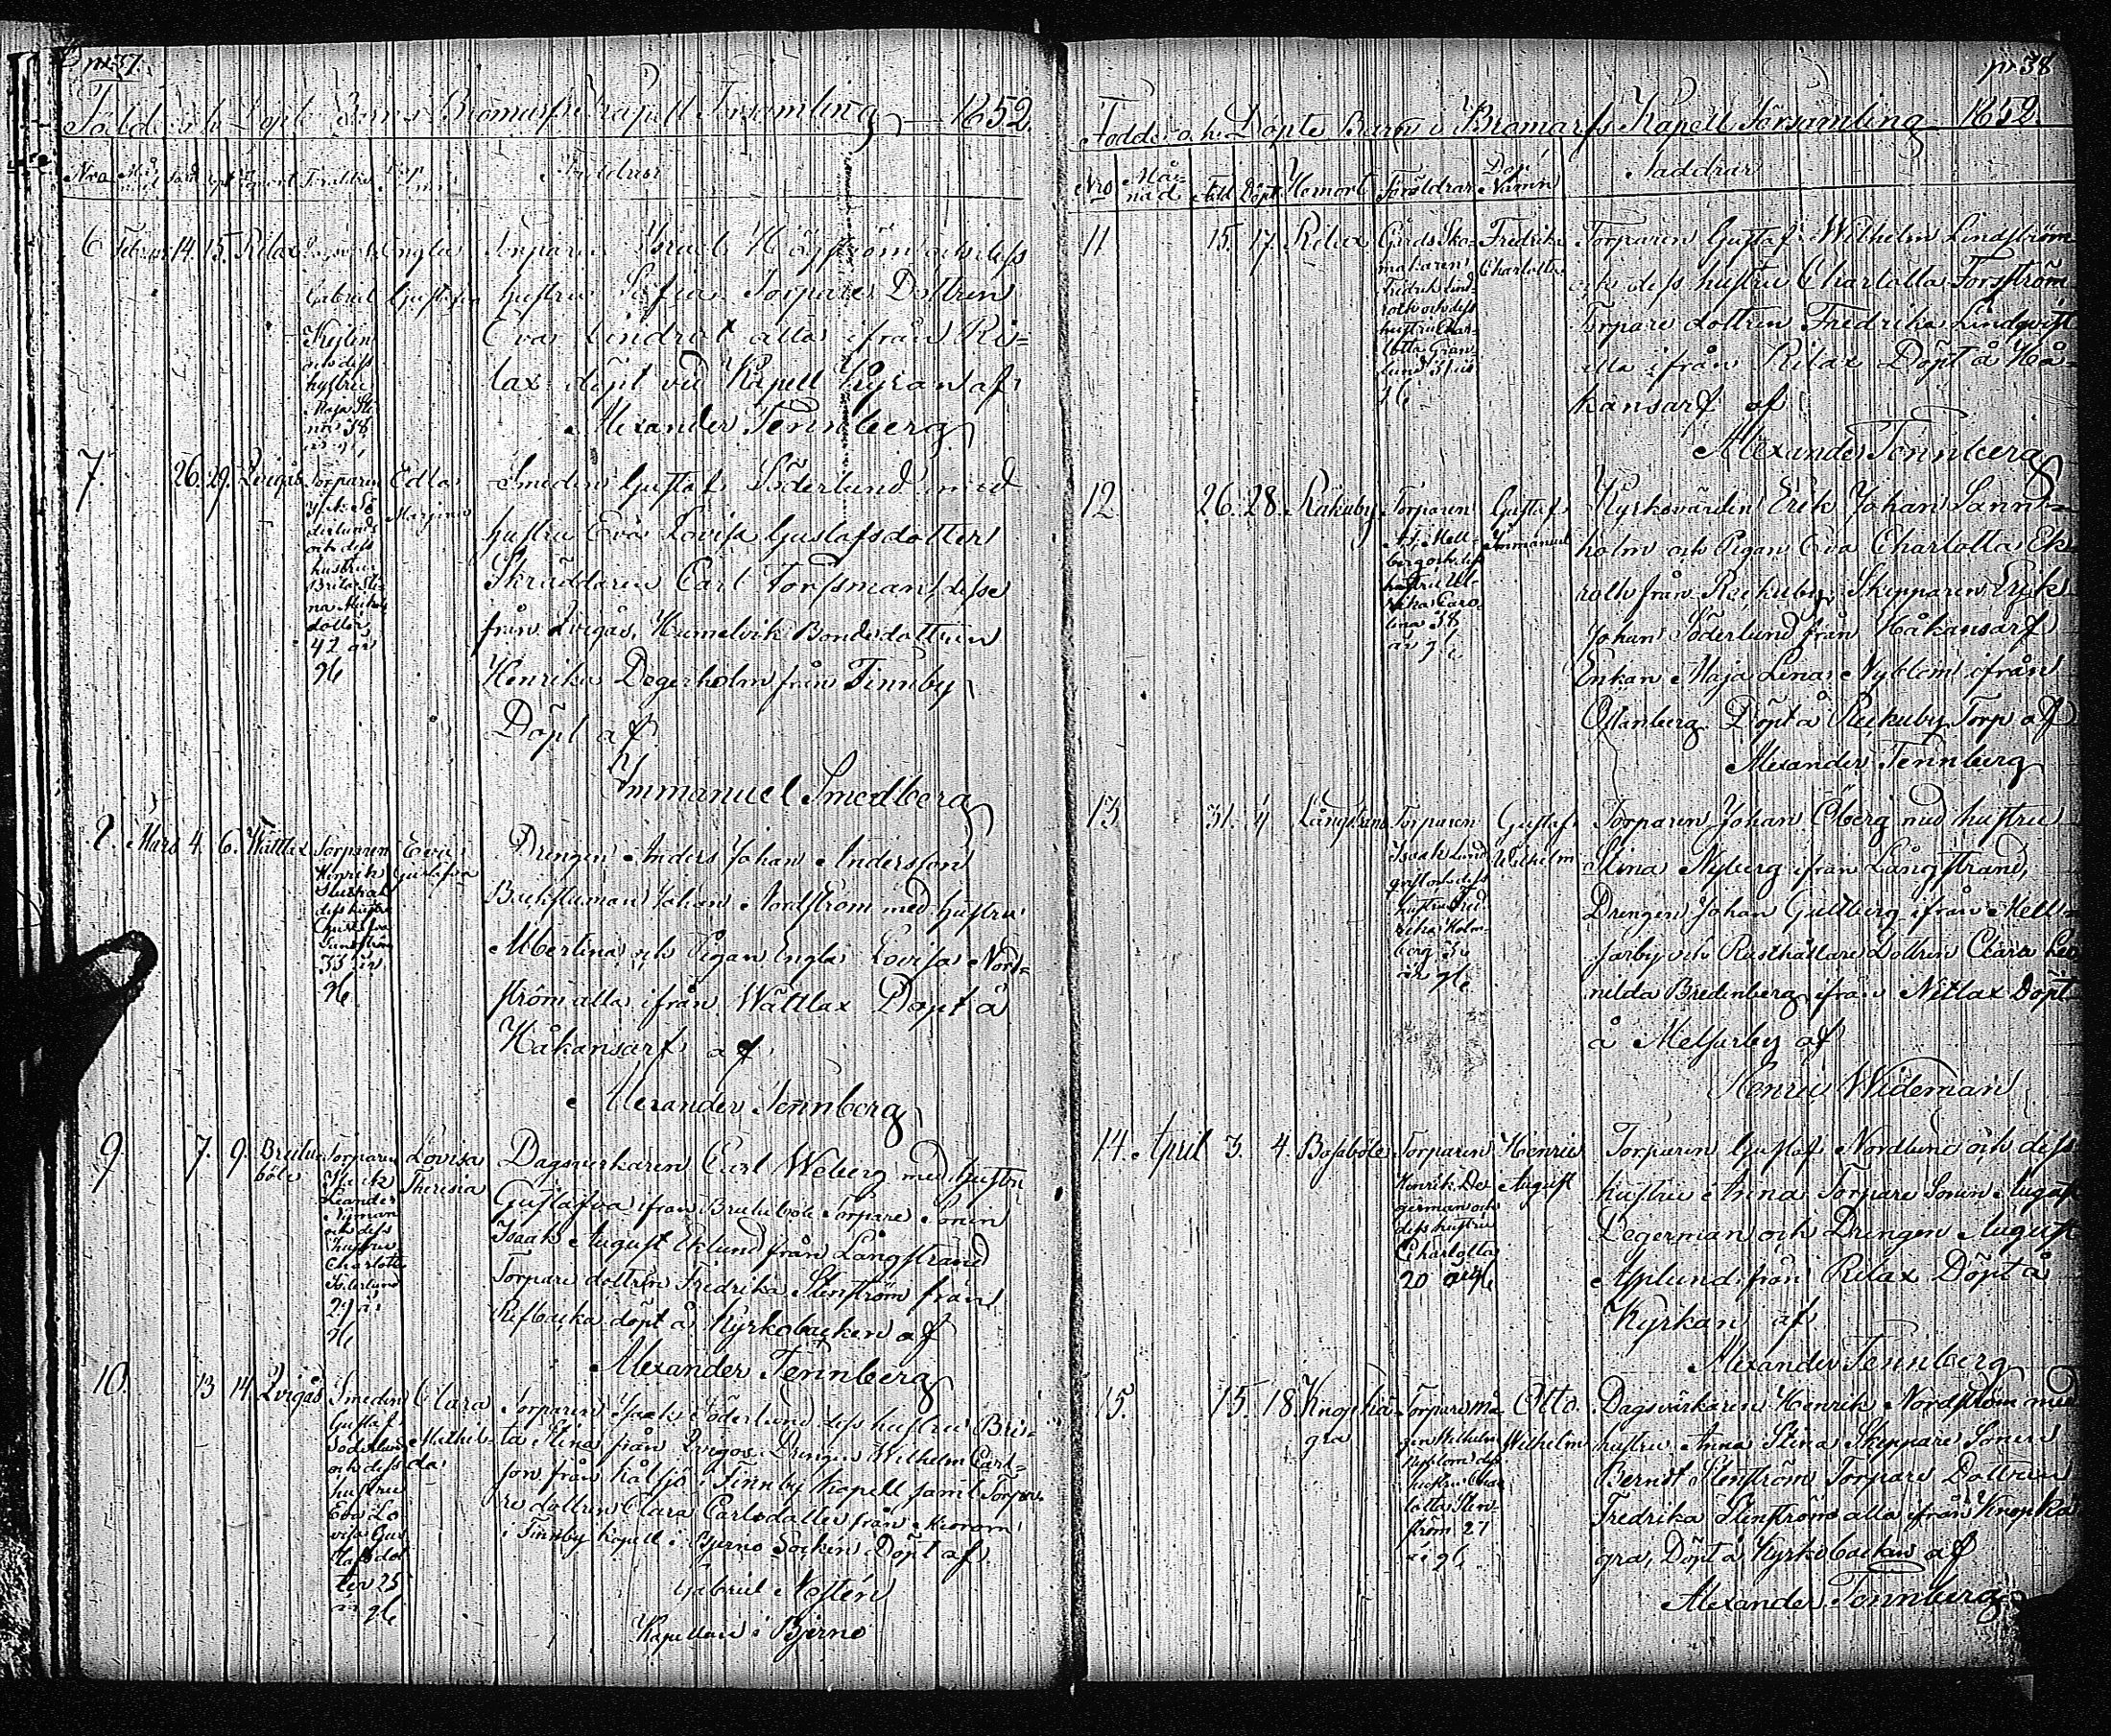 pr. 37.
Född och Döpte Barn i Bromarfs Kapell Församling 1852.
Nro Månad Född Döpt Hemort Föräldrar Döp Namn Faddrar
6 Februari 14. 15. Rilax
Gabriel
och dess
hustru
Maja Sti
na 38
Engla
Gustafva
Torparen Israel Högström och dess
hustru Sofia Torpare Dottren
Eva Lindrot alla ifrån Ri=
lax döpt vid Kapell Kyrkan af
Alexander Tennberg
7. 26. 29. Qvigås
Torparen
Isak Sö
derlund
och dess
hustru
Brita Sti-
na
dotter
42 år
gl.
Edla
Maria
Smeden Gustaf Söderlund med
hustru Eva Lovisa Gustafsdotter
Skräddaren Carl Forssman desse
från Qvigås, Bondedottren
Henrika Degerholm från Finnby
Döpt af
Immanuel Smedberg
8. Mars 4. 6. Wättlax
Torparen
Henrik
dess hustru
Gustafva
Lundström
33 år
gl.
Eva
Gustafva
Drengen Anders Johan Andersson
Backstuman Johan Nordström med hustru
Albertina och Pigan Engla Lovisa Nord=
ström alla ifrån Wättlax Döpt å
Håkansarf af
Alexander Tennberg
9. 7. 9. Bredvik
böle
Torparen
Isack
Leander
Nyman
och dess
hustru
Charlotta
Söderlund
29 år
gl.
Lovisa
Theresia
Dagsverkaren Carl Weberg med hustru
Gustafva ifrån Torpare Sonen
Isaak August Eklund från Långstrand
Torpare dottren Fredrika Stenström från
Refbacka döpt å Kyrkobacken af
Alexander Tennberg
10. 13 14. Qvigås
Smeden
Gustaf
Söderlund
och dess
hustru
Eva Lo
visa Gus
tafs dot
ter 25
år gl.
Clara
Mathil-
da
Torparen Isaak Söderlund dess hustru Bri=
ta Stina från Qvigos, Drengen Wilhelm Carl=
son från Kålsjö i Finnby Kapell samt Torpa-
re dottren Clara Carlsdotter från
i Finnby Kapell i Bjerno Socken Döpt af
Gabriel Nesten
Kapellan i Bjerno
pr. 38
Födde och Döpte Barn i Bromarfs Kapell Församling 1852.
Nro Månad Född Döpt Hemort Föräldrar Döp Namn Faddrar
11 15. 17. Rilax
Gårds Sko-
makaren
Fredrik Lind-
roth och dess
hustru Char-
lotta Gran-
lund 31 år
gl.
Fredrika
Charlotta
Torparen Gustaf Wilhelm Lindström
och dess hustru Charlotta Forsström
Torpare dottren Fredrika Lindqvist
alla ifrån Rilax Döpt å Hå-
kansarf af
Alexander Tennberg
12 26. 28. Räkuby
Torparen
Mell-
berg och dess
hustru Ul-
rika Caro-
lina 38
år gl.
Gustaf
Immanuel
Kyrkovärden Erik Johan Sann=
holm och Pigan Eva Charlotta Ek-
roth från Räckuby, Skepparen Erik
Johan Söderlund från Håkansarf
Enkan Maja Lena Nyblom ifrån
Östanberg Döpt å Räckuby Torp af
Alexander Tennberg
13 31. 4 Långstrand
Torparen
Isaak Lind
qvist och dess
hustru Fred-
rika Holm-
berg
år gl.
Gustaf
Wilhelm
Torparen Johan Öberg med hustru
Stina Nyberg ifrån Långstrand,
Drengen Johan Gultberg ifrån Mell=
sarby och Rusthållare Dottren Clara Leo
nilda Bredenberg ifrån Nitlax Döpt
å Melsarby af
Henric Wideman
14. April 3. 4. Bosaböle
Torparen
Henrik De
german och
dess hustru
Charlotta
20 år gl.
Henric
August
Torparen Gustaf Nordlund och dess
hustru Anna Torpare Sonen August
Degerman och Drengen August
Asplund från Rilax Döpt å
Kyrkan af
Alexander Tennberg
15. 15. 18. Knopkä
gra
Torpare Må
gen Wilhelm
Nyblom dess
hustru Char
lotta Sten-
ström 27
år gl.
Otto
Wilhelm
Dagsvärkaren Henrik Nordström med
hustru Anna Stina Skeppare Sonen
Berndt Stenström Torpare Dottren
Fredrika Stenström alla ifrån Knopkä
gra, Döpt å Kyrkobacken af
Alexander Tennberg